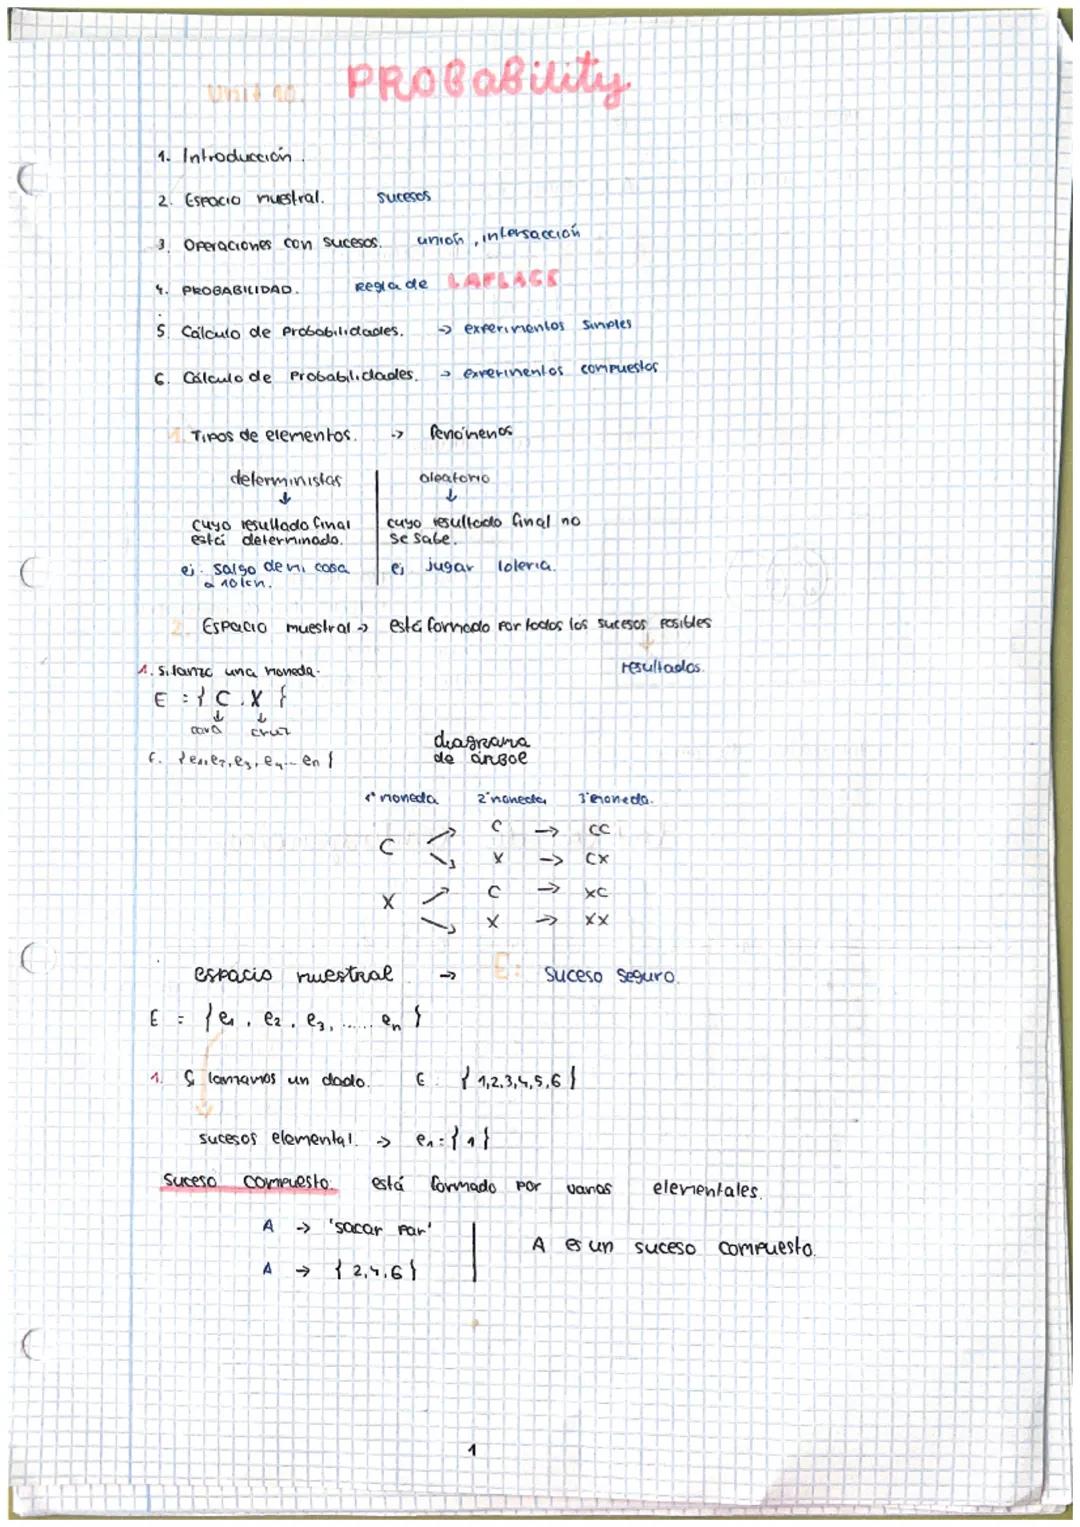 Unit 10. PROBability
1. Introducción.
2. Espacio muestral. sucesos
3. Operaciones con sucesos. unión, intersacción
4. PROBABILIDAD. Regla de LAPLACE
5. Cálculo de Probabilidades. -> experimentos simples
6. Cálculo de Probabilidades. -> experimentos compuestos
1. Tipos de elementos. -> fenómenos
deterministas aleatorio
↓ ↓
cuyo resultado final cuyo resultado final no
está determinado. se sabe.
ej. salgo de mi casa ej jugar lotería.
a 10km.
2. Espacio muestral -> está formado por todos los sucesos posibles
↓
1. Si lanzo una moneda. resultados.
E = { C . X }
↓ ↓
cara cruz
diagrama
de árbol
E. {e1, e2, e3, e4... en }
1ª moneda 2ª moneda 3ª moneda.
C -> CC
C
X -> CX
C -> XC
X
X -> XX
espacio muestral -> E: Suceso seguro.
E = { e1 , e2 , e3, ...... en }
1. Si lanzamos un dado. E { 1,2,3,4,5,6 }
sucesos elemental. -> e1 = { 1 }
Suceso compuesto: está formado por varios elementales.
A -> 'sacar par'
A es un suceso compuesto.
A -> { 2,4,6 }
1